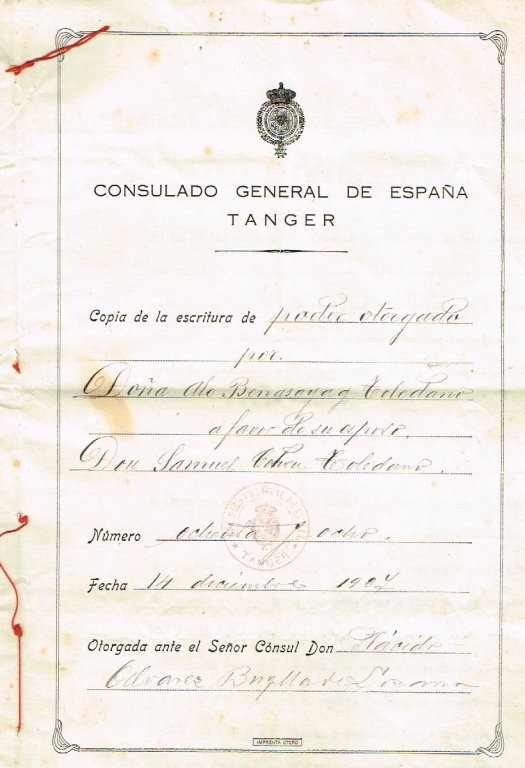 CONSULADO GENERAL DE ESPAÑA
TANGER
Copia de la escritura de poder otorgado
por.
Doña Benasayag Toledano
a favor de su esposo.
Don Samuel Cohen Toledano.
TANGER
Número ochenta y ocho.
Fecha 14 diciembre 1927
Otorgada ante el Señor Cónsul Don Plácido
Alvarez Buylla de Lozana
IMPRENTA OTERO